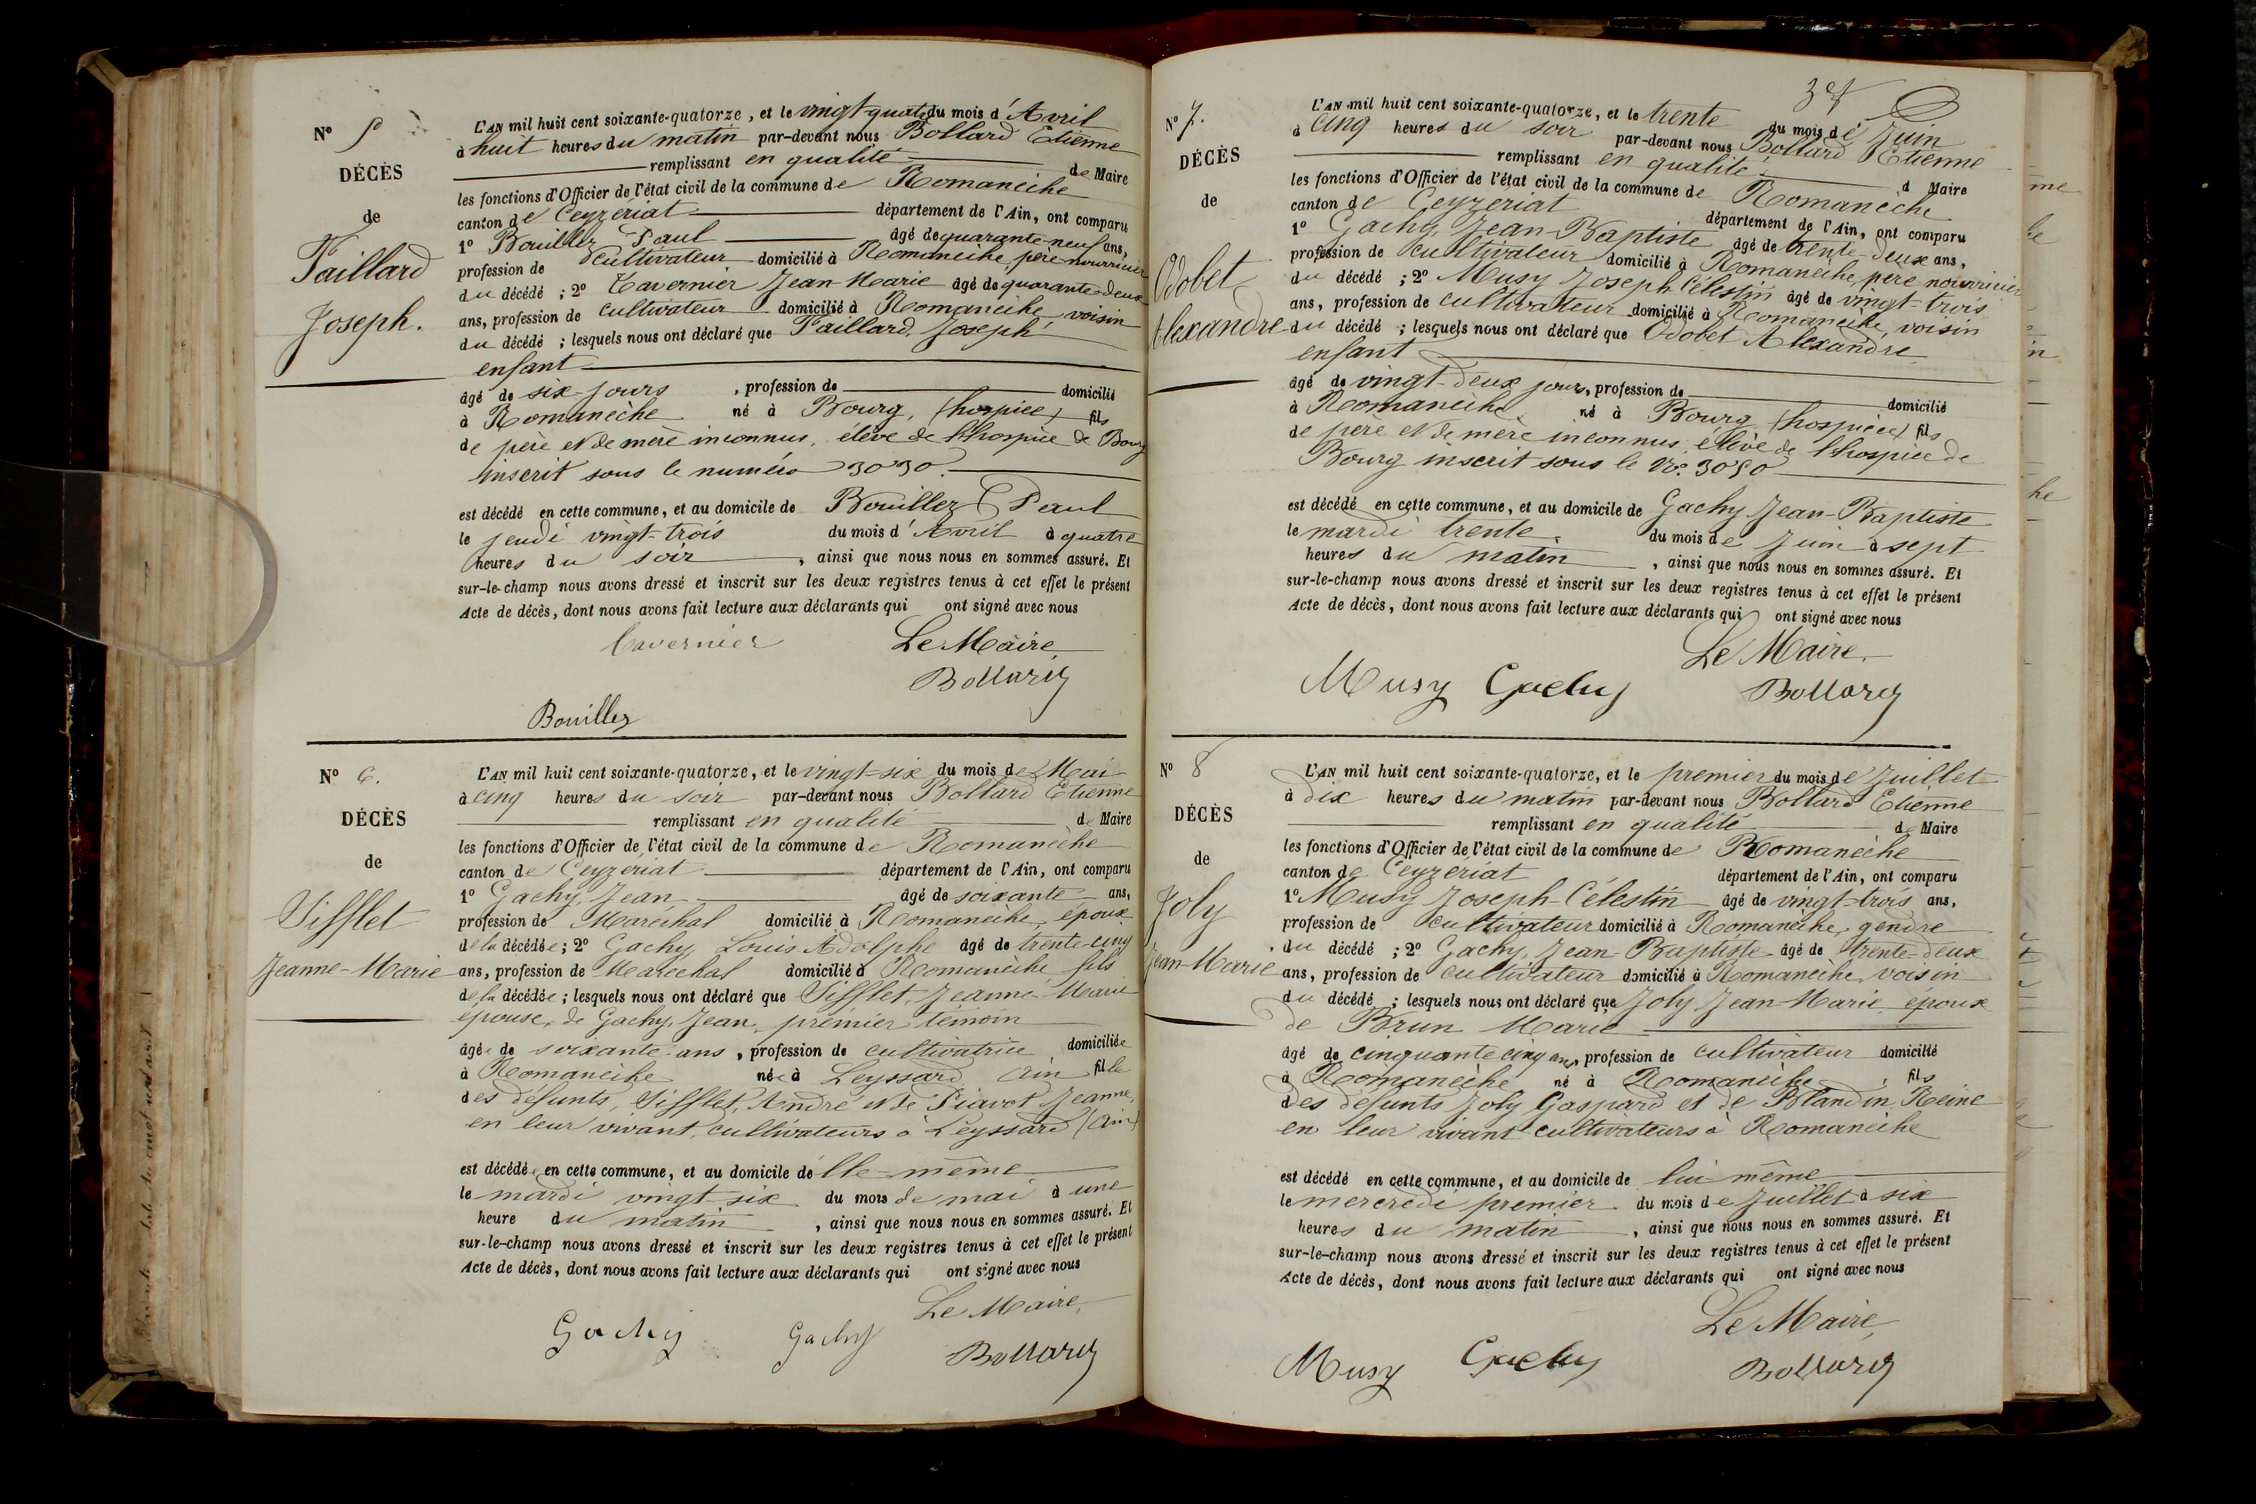 N° 5
DÉCÈS
de
Faillard
Joseph.
L'AN mil huit cent soixante-quatorze, et le vingt-quatre du mois d'Avril
à huit heures du matin par-devant nous Bollard Etienne
remplissant en qualité de Maire
les fonctions d'Officier de l'état civil de la commune de Romanèche
canton de Ceyzériat département de l'Ain, ont comparu
1° Bouillez Paul âgé de quarante-neuf ans,
profession de cultivateur domicilié à Romanèche, père nourricier
du décédé ; 2° Tavernier Jean-Marie âgé de quarante-deux
ans, profession de cultivateur domicilié à Romanèche, voisin
du décédé ; lesquels nous ont déclaré que Faillard, Joseph
enfant
âgé de six jours, profession de domicilié
à Romanèche né à Bourg, (hospice) fils
de père et de mère inconnus, élève de l'hospice de Bourg
inscrit sous le numéro 3030.
est décédé en cette commune, et au domicile de Bouillez Paul
le jeudi vingt-trois du mois d'Avril à quatre
heures du soir, ainsi que nous nous en sommes assuré. Et
sur-le-champ nous avons dressé et inscrit sur les deux registres tenus à cet effet le présent
Acte de décès, dont nous avons fait lecture aux déclarants qui ont signé avec nous
Tavernier Le Maire,
Bollard
Bouillez
N° 6.
DÉCÈS
de
Sifflet
Jeanne-Marie
L'AN mil huit cent soixante-quatorze, et le vingt-six du mois de Mai
à cinq heures du soir par-devant nous Bollard Etienne
remplissant en qualité de Maire
les fonctions d'Officier de l'état civil de la commune de Romanèche
canton de Ceyzériat département de l'Ain, ont comparu
1° Gachy, Jean âgé de soixante ans,
profession de Maréchal domicilié à Romanèche, époux
de la décédée ; 2° Gachy, Louis Adolphe âgé de trente-cinq
ans, profession de Maréchal domicilié à Romanèche fils
de la décédée ; lesquels nous ont déclaré que Sifflet, Jeanne-Marie
épouse, de Gachy, Jean, premier témoin
âgée de soixante-ans, profession de cultivatrice domiciliée
à Romanèche née à Leyssard Ain fille
des défunts, Sifflet, André et de Piavot Jeanne,
en leur vivant, cultivateurs à Leyssard (Ain)
est décédée en cette commune, et au domicile d'elle-même
le mardi vingt-six du mois de mai à une
heure du matin, ainsi que nous nous en sommes assuré. Et
sur-le-champ nous avons dressé et inscrit sur les deux registres tenus à cet effet le présent
Acte de décès, dont nous avons fait lecture aux déclarants qui ont signé avec nous
Le Maire,
Gachy Gachy Bollard
N° 7.
DÉCÈS
de
Odobet
Alexandre
L'AN mil huit cent soixante-quatorze, et le trente du mois de Juin
à cinq heures du soir par-devant nous Bollard Etienne
remplissant en qualité d Maire
les fonctions d'Officier de l'état civil de la commune de Romanèche
canton de Ceyzériat département de l'Ain, ont comparu
1° Gachy, Jean-Baptiste âgé de trente-deux ans,
profession de cultivateur domicilié à Romanèche, père nourricier
du décédé ; 2° Musy Joseph Célestin âgé de vingt-trois
ans, profession de cultivateur domicilié à Romanèche, voisin
du décédé ; lesquels nous ont déclaré que Odobet Alexandre
enfant
âgé de vingt-deux jours, profession de domicilié
à Romanèche né à Bourg (hospice) fils
de père et de mère inconnus, élève de l'hospice de
Bourg inscrit sous le No. 3050
est décédé en cette commune, et au domicile de Gachy Jean-Baptiste
le mardi trente du mois de Juin à sept
heures du matin, ainsi que nous nous en sommes assuré. Et
sur-le-champ nous avons dressé et inscrit sur les deux registres tenus à cet effet le présent
Acte de décès, dont nous avons fait lecture aux déclarants qui ont signé avec nous
Le Maire,
Musy Gachy Bollard
N° 8
DÉCÈS
de
Joly
Jean-Marie
L'AN mil huit cent soixante-quatorze, et le premier du mois de Juillet
à dix heures du matin par-devant nous Bollard Etienne
remplissant en qualité de Maire
les fonctions d'Officier de l'état civil de la commune de Romanèche
canton de Ceyzériat département de l'Ain, ont comparu
1° Musy Joseph-Célestin âgé de vingt-trois ans,
profession de cultivateur domicilié à Romanèche, gendre
du décédé ; 2° Gachy, Jean-Baptiste âgé de trente-deux
ans, profession de cultivateur domicilié à Romanèche, voisin
du décédé ; lesquels nous ont déclaré que Joly Jean-Marie époux
de Brun Marie
âgé de cinquante cinq ans, profession de cultivateur domicilié
à Romanèche né à Romanèche, fils
des défunts Joly Gaspard et de Blandin, Reine
en leur vivant cultivateurs à Romanèche
est décédé en cette commune, et au domicile de lui même
le mercredi premier du mois de Juillet à six
heures du matin, ainsi que nous nous en sommes assuré. Et
sur-le-champ nous avons dressé et inscrit sur les deux registres tenus à cet effet le présent
Acte de décès, dont nous avons fait lecture aux déclarants qui ont signé avec nous
Le Maire,
Musy Gachy Bollard